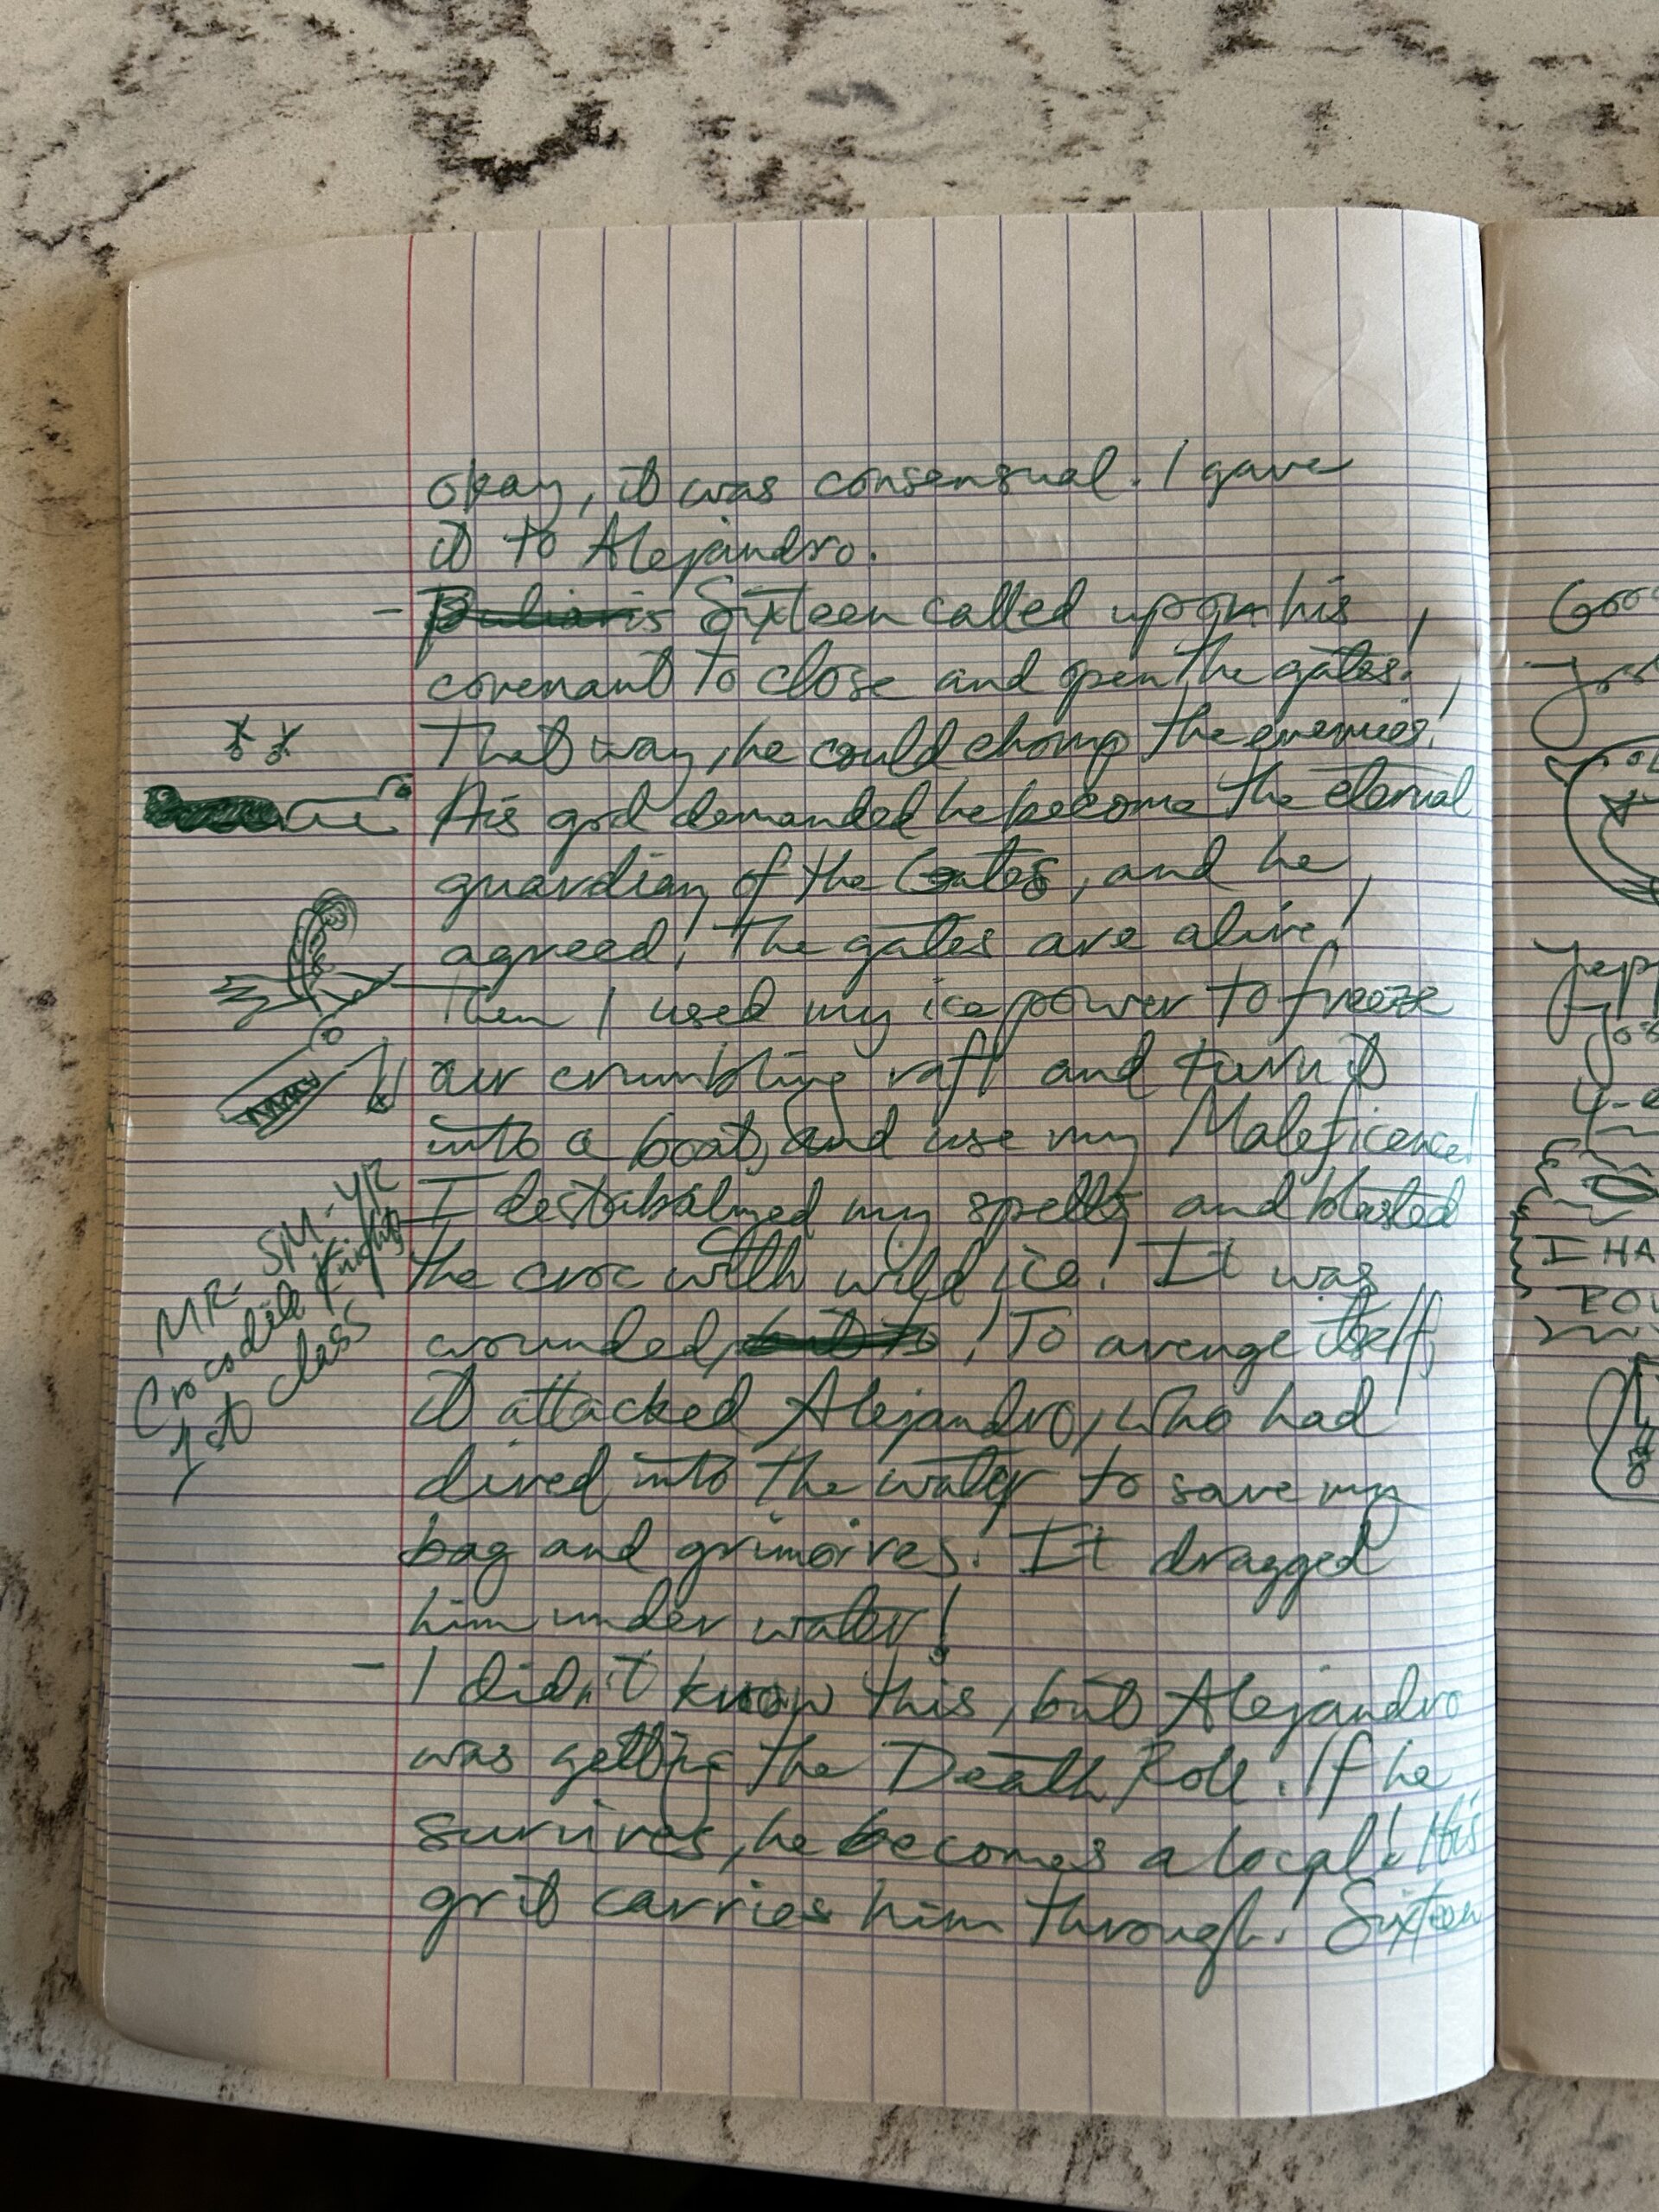 okay, it was consensual. I gave
it to Alejandro.
- Sixteen called upon his
covenant to close and open the gates!
That way, he could chomp the enemies!
His god demanded he become the eternal
guardian of the Gates, and he
agreed! The gates are alive!
Then I used my ice power to freeze
our crumbling raft and turn it
into a boat, and use my Maleficence!
I destabalized my spells and blasted
the croc with wild ice! It was
wounded, but to! To avenge itself,
it attacked Alejandro, who had
dived into the water to save my
bag and grimoires. It dragged
him under water!
- I didn't know this, but Alejandro
was getting the Death Roll. If he
survives, he becomes a local! His
grit carries him through. Sixteen
MR. SM-YR
Crocodile Knight
1st class
I HA